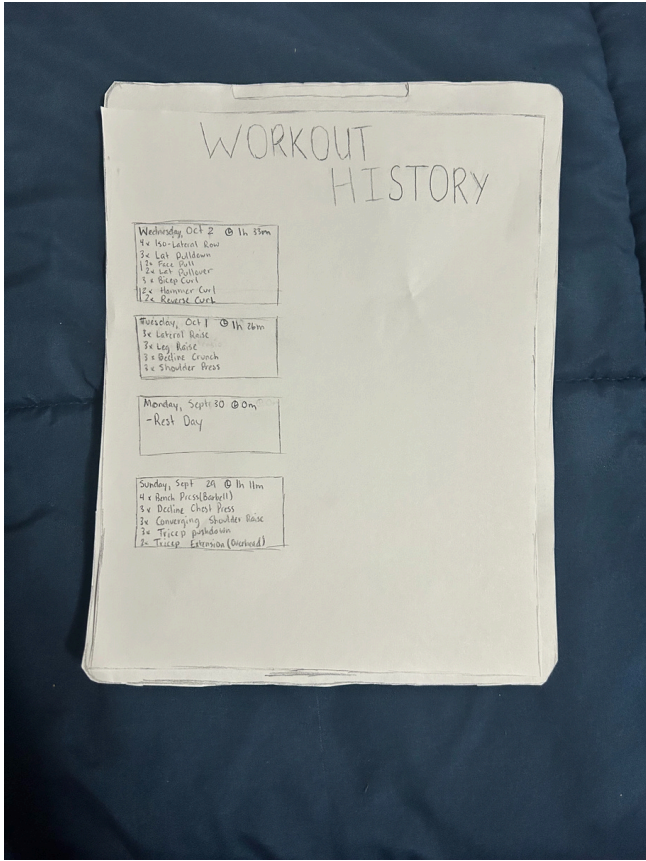 WORKOUT
HISTORY
Wednesday, Oct 2 1h 33m
4x Iso-Lateral Row
3x Lat Pulldown
2x Face Pull
2x Lat Pullover
3x Bicep Curl
2x Hammer Curl
2x Reverse Curl
Tuesday, Oct 1 1h 26m
3x Lateral Raise
3x Leg Raise
3x Decline Crunch
3x Shoulder Press
Monday, Sept 30 0m
-Rest Day
Sunday, Sept 29 1h 11m
4x Bench Press(Barbell)
3x Decline Chest Press
3x Converging Shoulder Raise
3x Tricep pushdown
2x Tricep Extension(Overhead)